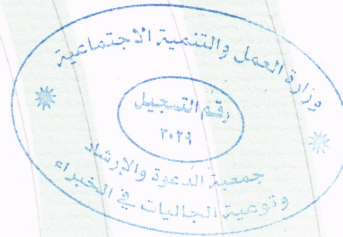 وزارة العمل والتنمية الاجتماعية
رقم التسجيل
٢٠٢٩
جمعية الدعوة والإرشاد
وتوعية الجاليات في الخبراء